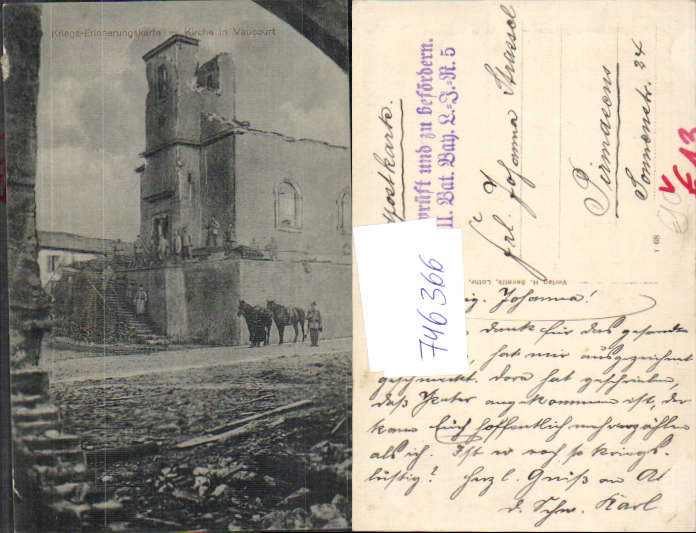 Kriegs-Erinnerungskarte Kirche in Vaucourt
postkarte.
prüft und zu befördern.
II. Bat. Bay. L.=J.=R. 5
Frl. Johanna Strassel
Pirmasens
Sonnenstr. 34
Verlag H. Lothr.
1 68
746366
Johanna!
dank für das gesandte
hat mir ausgezeichnet
geschmeckt. Dora hat geschrieben,
daß angekommen ist, der
kann Euch hoffentlich mehr erzählen
als ich. Ist er noch so kriegs-
lustig? Herzl. Gruß an
d. Schw. Karl